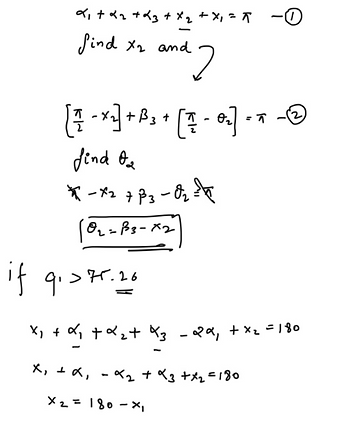 α₁ + α₂ + α₃ + x₂ + x₁ = π — ①
find x₂ and
[π/2 - x₂] + β₃ + [π/2 - θ₂] = π — ②
find θ₂
π - x₂ + β₃ - θ₂ = π
θ₂ = β₃ - x₂
if q₁ > 75.26
x₁ + α₁ + α₂ + α₃ - 2α₁ + x₂ = 180
x₁ + α₁ - α₂ + α₃ + x₂ = 180
x₂ = 180 - x₁